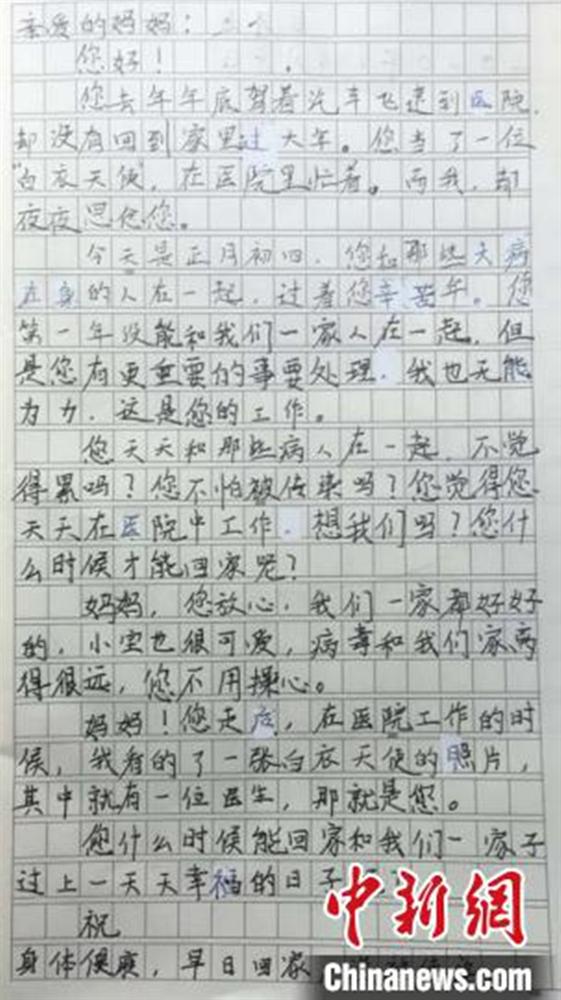 亲爱的妈妈：
您好！
您去年年底驾着汽车飞速到医院，
却没有回到家里过大年。您当了一位
“白衣天使”，在医院里忙着。而我，却
夜夜思念您。
今天是正月初四，您和那些大病
在身的人在一起，过着您辛苦年。您
第一年没能和我们一家人在一起，但
是您有更重要的事要处理，我也无能
为力，这是您的工作。
您天天和那些病人在一起，不觉
得累吗？您不怕被传染吗？您觉得您
天天在医院中工作，想我们吗？您什
么时候才能回家呢？
妈妈，您放心，我们一家都好好
的，小宝也很可爱，病毒和我们家离
得很远，您不用操心。
妈妈！您走后，在医院工作的时
候，我看的了一张白衣天使的照片，
其中就有一位医生，那就是您。
您什么时候能回家和我们一家子
过上一天天幸福的日子
祝
身体健康，早日回家
中新網
Chinanews.com